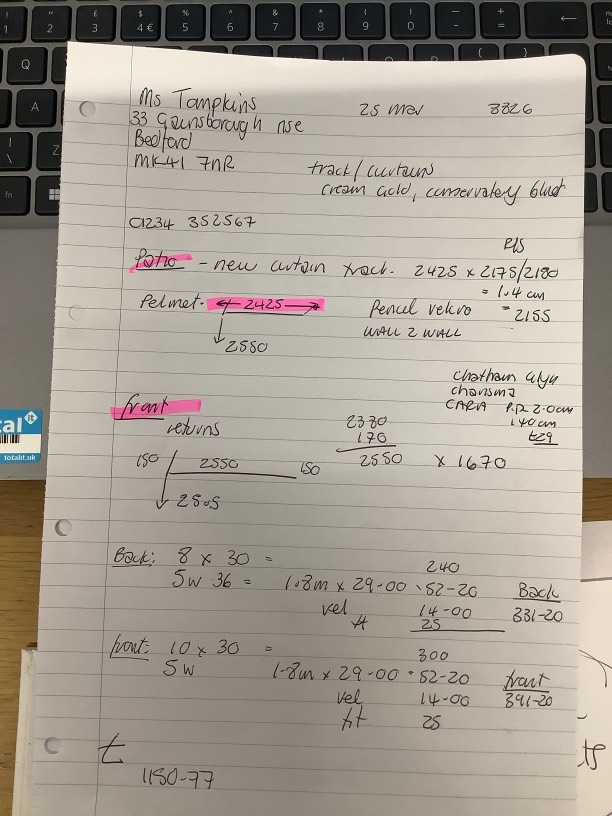 Ms Tompkins 25 mar 3826
33 Gainsborough rise
Bedford
MK41 7NR track/curtains
cream gold, conservatory blind
01234 352567
Patio - new curtain track. 2425 x 2175/2180
= 1.4 cm
Pelmet. ← 2425 → Pencil velcro = 2155
WALL 2 WALL
↓ 2550
chatham
charisma
CARA P.R 2.0cm
front 140cm
returns 2380 £29
170
150 2550 150 2550 x 1670
↓ 2505
Back: 8 x 30 = 240
5w 36 = 1.8m x 29-00 . 52-20 Back
vel 14-00 331-20
ft 25
front: 10 x 30 = 300
5w 1-8m x 29-00 . 52-20 front
vel 14-00 391-20
fit 25
t
1150-77
tal it
totalit.uk